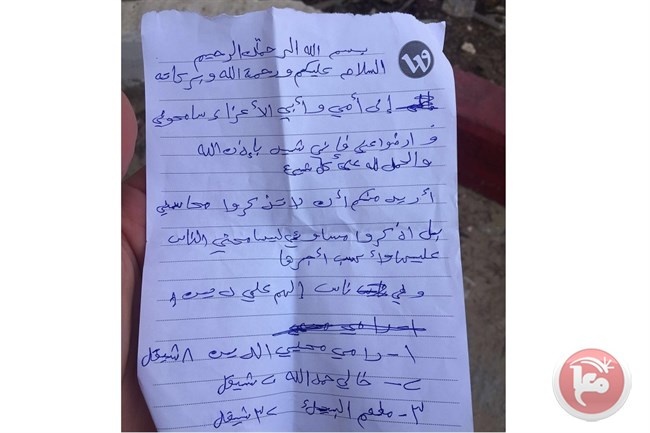 بسم الله الرحمن الرحيم
السلام عليكم ورحمة الله وبركاته
إلى أمي وأبي الأعزاء سامحوني
وارضوا عني فإني شهيد بإذن الله
والحمد لله على كل شيء
أريد منكم أن لا تذكروا محاسني
بل اذكروا مساوئي ليسامحني الناس
عليها وأكسب أجرها
وفي ناس الهم علي دين
١- رامي محيي الدين ٨ شيقل
٢- خالي حمد الله ٢ شيقل
٣- مطعم ٣٢ شيقل
معا